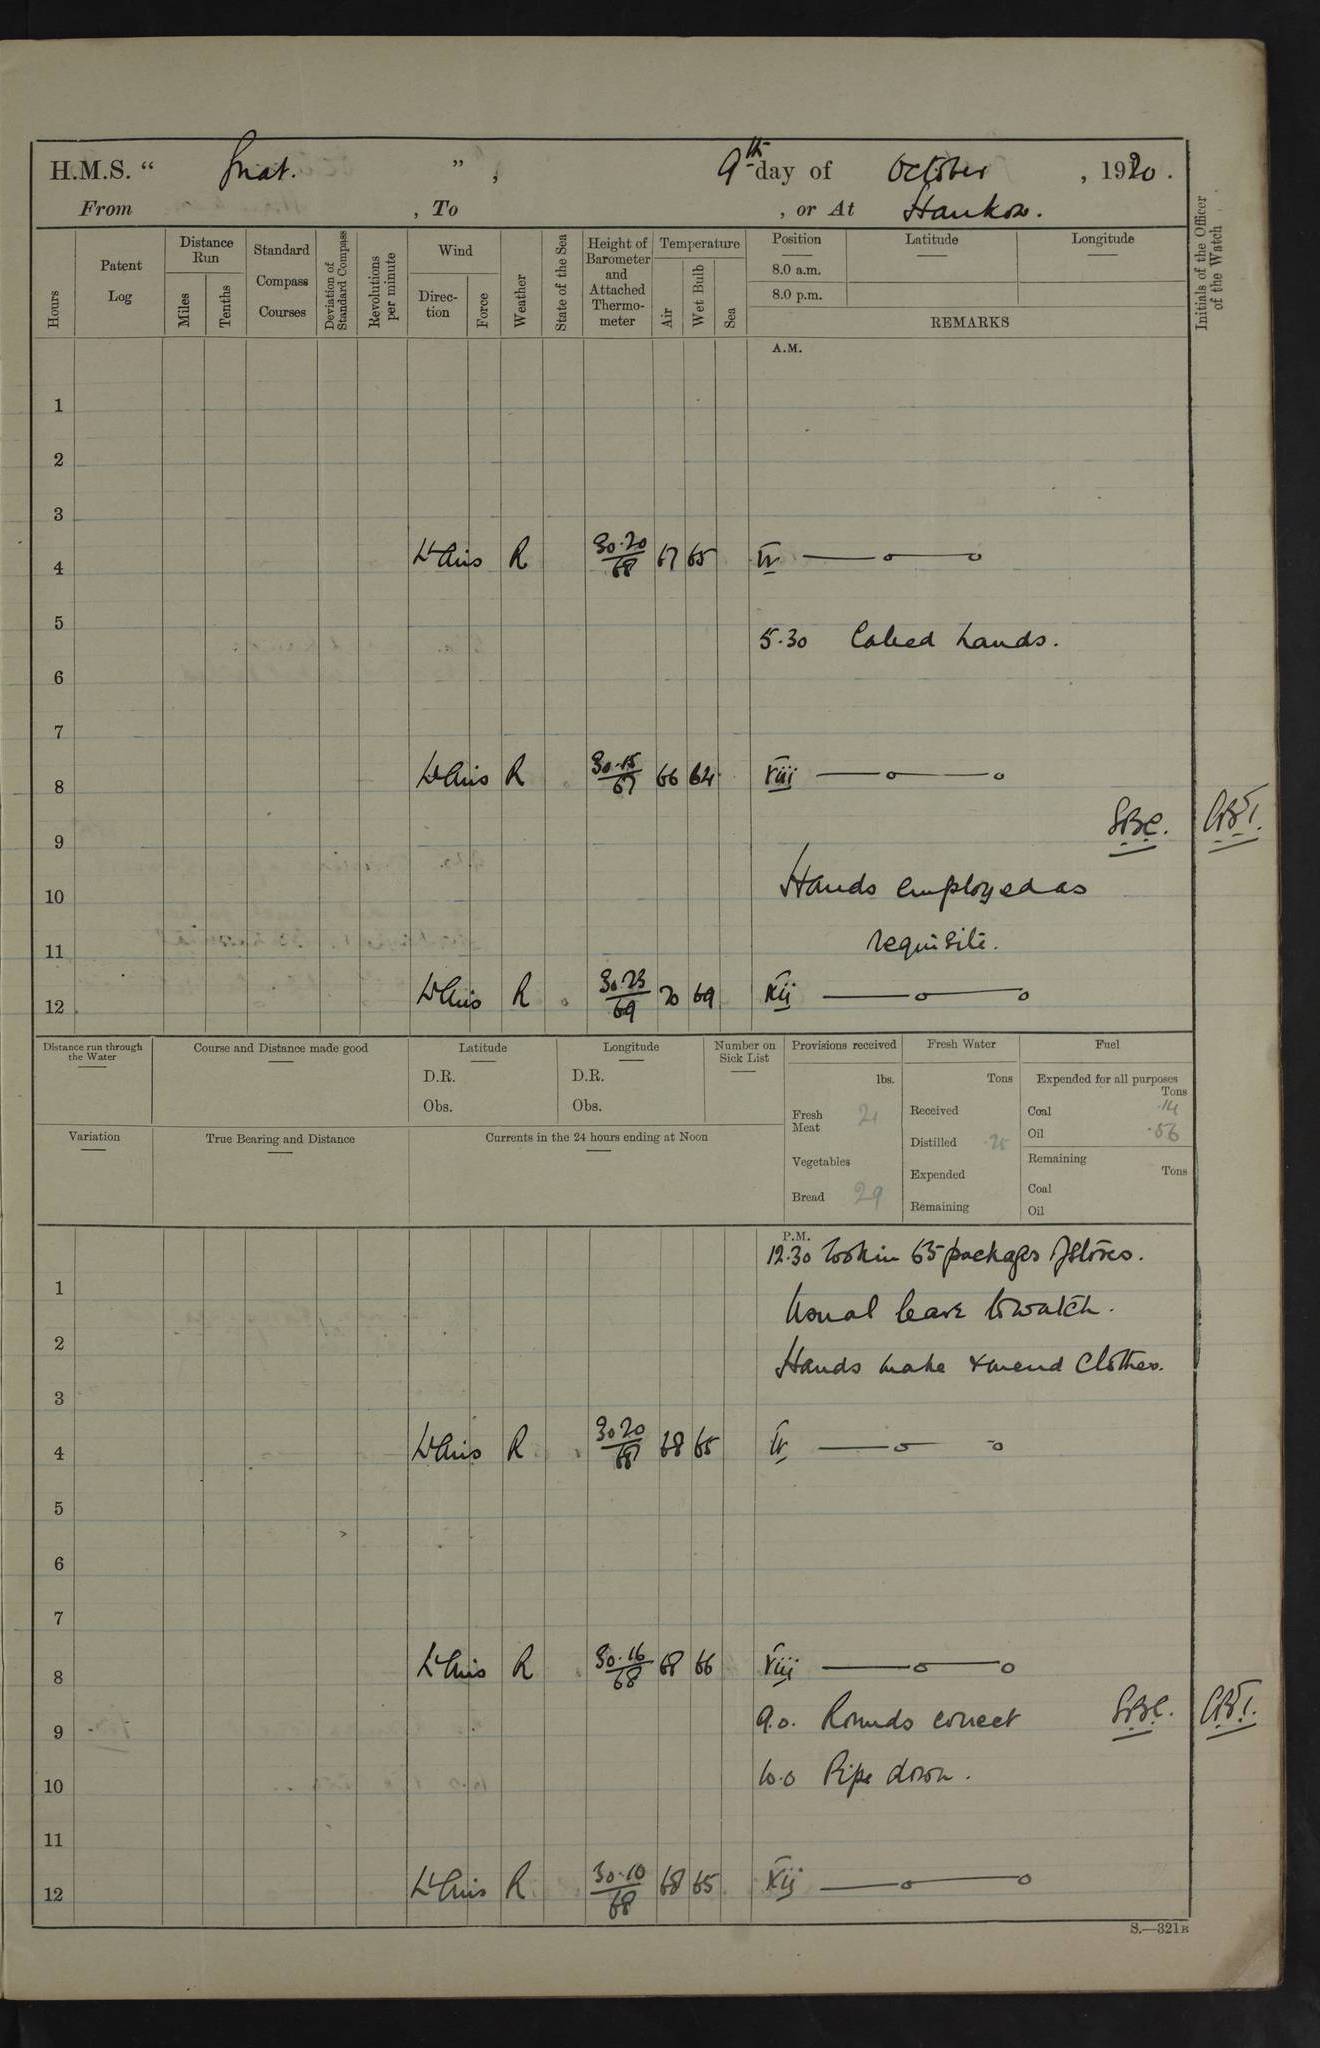 H.M.S. " Gnat. " , 9th day of October , 1920.
From , To , or At Hankow.
Hours
Patent Log
Distance Run
Miles
Tenths
Standard Compass Courses
Deviation of Standard Compass
Revolutions per minute
Wind
Direction
Force
Weather
State of the Sea
Height of Barometer and Attached Thermometer
Temperature
Air
Wet Bulb
Sea
Position
8.0 a.m.
8.0 p.m.
Latitude
Longitude
REMARKS
Initials of the Officer of the Watch
A.M.
1
2
3
4 Lt Airs R 30.20/68 67 65 IV
5
5.30 Called hands.
6
7
8 Lt Airs R 30.15/67 66 64 VIII
9
10 Hands employed as
11 requisite.
12 Lt Airs R 30.23/69 70 69 XII
Distance run through the Water
Course and Distance made good
Latitude
D.R.
Obs.
Longitude
D.R.
Obs.
Number on Sick List
Provisions received
lbs.
Fresh Meat 21
Vegetables
Bread 29
Fresh Water
Tons
Received
Distilled .25
Expended
Remaining
Fuel
Expended for all purposes
Tons
Coal .14
Oil .56
Remaining
Tons
Coal
Oil
Variation
True Bearing and Distance
Currents in the 24 hours ending at Noon
P.M.
12.30 Took in 65 packages of stores.
1 Usual leave to watch.
2 Hands make & mend Clothes.
3
4 Lt Airs R 30.20/68 68 65 IV
5
6
7
8 Lt Airs R 30.16/68 68 66 VIII
9 9.0. Rounds correct
10 10.0 Pipe down.
11
12 Lt Airs R 30.10/68 68 65 XII
S.—321B